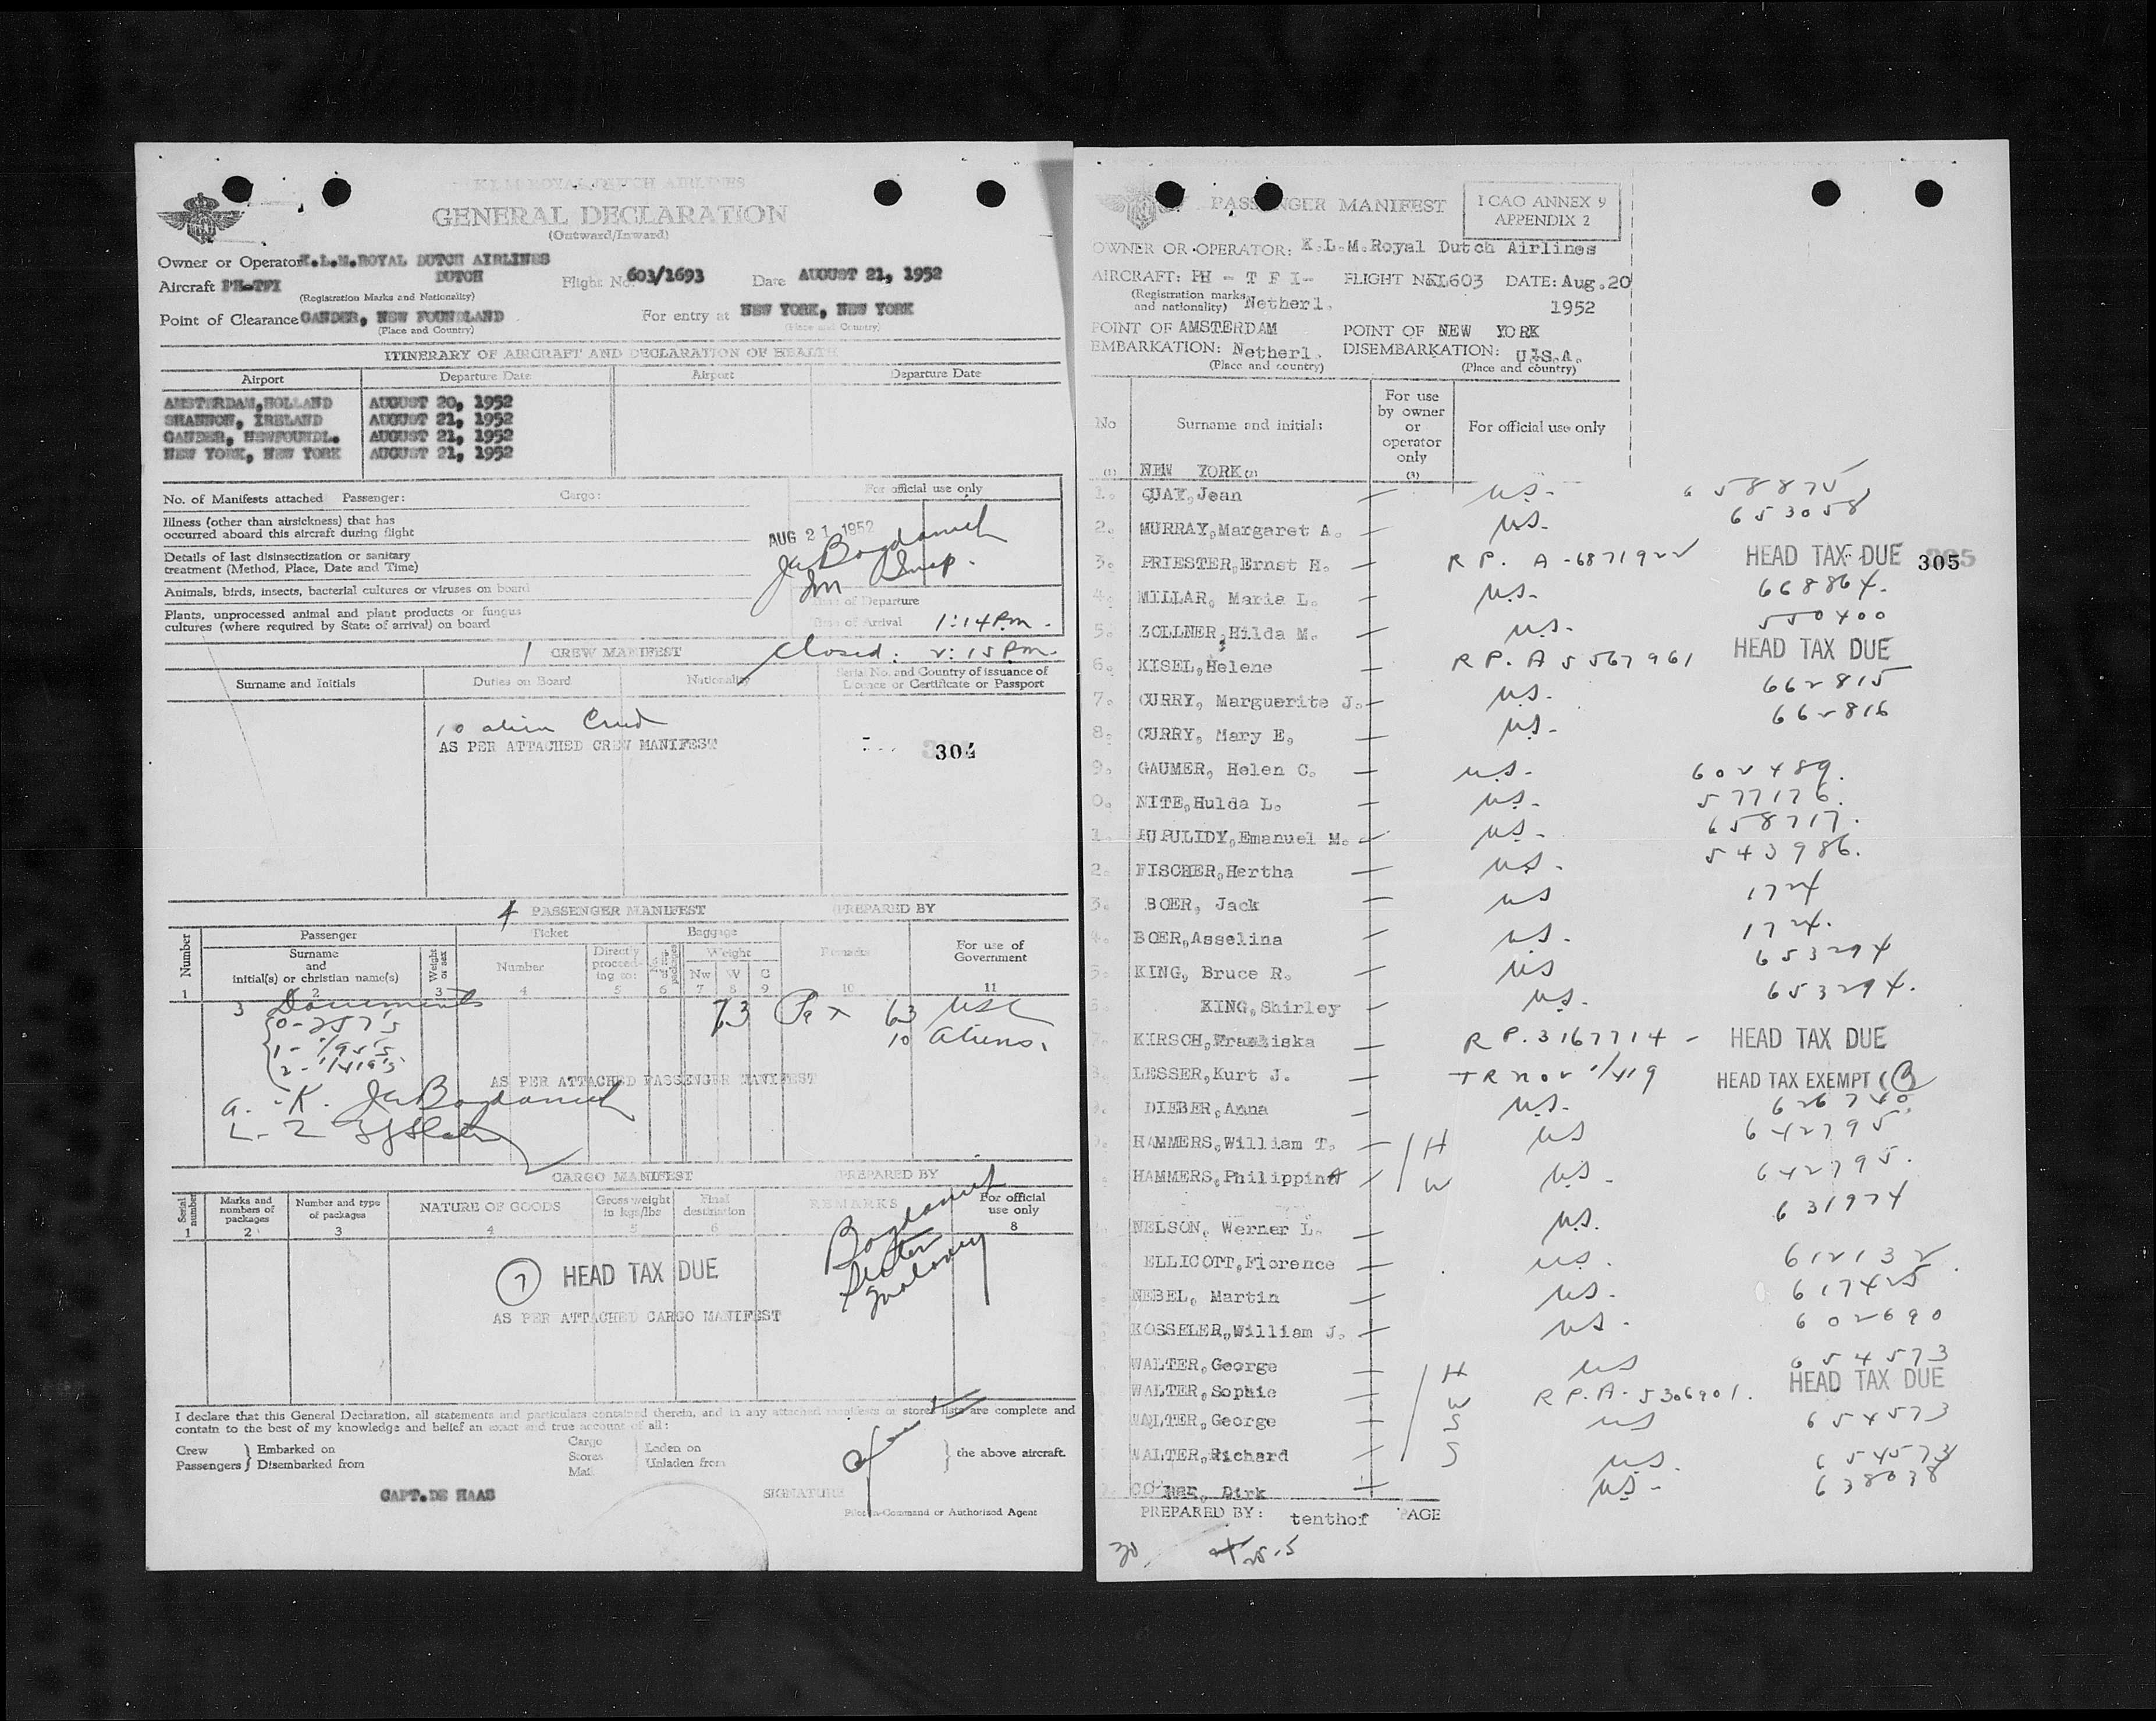 K.L.M. ROYAL DUTCH AIRLINES
GENERAL DECLARATION
(Outward/Inward)
Owner or Operator K.L.M.ROYAL DUTCH AIRLINES
Aircraft PH-TFI DUTCH Flight No. 603/1693 Date AUGUST 21, 1952
(Registration Marks and Nationality)
Point of Clearance GANDER, NEW FOUNDLAND For entry at NEW YORK, NEW YORK
(Place and Country) (Place and Country)
ITINERARY OF AIRCRAFT AND DECLARATION OF HEALTH
Airport Departure Date Airport Departure Date
AMSTERDAM,HOLLAND AUGUST 20, 1952
SHANNON, IRELAND AUGUST 21, 1952
GANDER, NEWFOUNDL. AUGUST 21, 1952
NEW YORK, NEW YORK AUGUST 21, 1952
No. of Manifests attached Passenger: Cargo: For official use only
Illness (other than airsickness) that has
occurred aboard this aircraft during flight
AUG 21 1952
Details of last disinsectization or sanitary
treatment (Method, Place, Date and Time)
Ja Bogdanich
Im Insp.
Animals, birds, insects, bacterial cultures or viruses on board
Time of Departure
Plants, unprocessed animal and plant products or fungus
cultures (where required by State of arrival) on board
Time of Arrival 1:14 Pm.
1 CREW MANIFEST Closed: 2:15 Pm.
Surname and Initials Duties on Board Nationality Serial No. and Country of issuance of
Licence or Certificate or Passport
10 alien Crew
AS PER ATTACHED CREW MANIFEST
304
4 PASSENGER MANIFEST PREPARED BY
Number Passenger Ticket Baggage
Surname
and
initial(s) or christian name(s) Weight or sex Number Directly
proceed-
ing to: Weight Remarks For use of
Government
Nw W C
1 2 3 4 5 6 7 8 9 10 11
3 Documents 73 Pax 63 USC
0-257's
10 aliens.
1-I/95's
2-I/419's
AS PER ATTACHED PASSENGER MANIFEST
A-K. Ja Bogdanich
L-Z
CARGO MANIFEST PREPARED BY
Serial number Marks and
numbers of
packages Number and type
of packages NATURE OF GOODS Gross weight
in kgs/lbs Final
destination REMARKS For official
use only
1 2 3 4 5 6 8
Bogdanich
Slater
Maloney
7 HEAD TAX DUE
AS PER ATTACHED CARGO MANIFEST
I declare that this General Declaration, all statements and particulars contained therein, and in any attached manifests or stores lists are complete and
contain to the best of my knowledge and belief an exact and true account of all:
Crew
Passengers } Embarked on
Disembarked from Cargo
Stores
Mail Laden on
Unladen from } the above aircraft.
CAPT.DE HAAS SIGNATURE
Pilot in Command or Authorized Agent
PASSENGER MANIFEST
I CAO ANNEX 9
APPENDIX 2
OWNER OR OPERATOR: K.L.M.Royal Dutch Airlines
AIRCRAFT: PH - T F I - FLIGHT No KL603 DATE: Aug.20
(Registration marks
and nationality) Netherl. 1952
POINT OF AMSTERDAM POINT OF NEW YORK
EMBARKATION: Netherl. DISEMBARKATION: U.S.A.
(Place and country) (Place and country)
No Surname and initials For use
by owner
or
operator
only For official use only
(1) NEW YORK (2) (3)
1. QUAY,Jean — US. 658875
2. MURRAY,Margaret A. — US. 653058
3. PRIESTER,Ernst H. — RP. A-6871922 HEAD TAX DUE 305
4. MILLAR, Maria L. — US. 668864.
5. ZOLLNER,Hilda M. — US. 550400
6. KISEL,Helene — RP. A5567961 HEAD TAX DUE
7. CURRY, Marguerite J. — US. 662815
8. CURRY, Mary E, — US. 662816
9. GAUMER, Helen C. — US. 602489.
0. NITE,Hulda L. — US. 577176.
1. PUPULIDY,Emanuel M. — US. 658717.
2. FISCHER,Hertha — US. 543986.
3. BOER, Jack — US 1724
4. BOER,Asselina — US. 1724.
5. KING, Bruce R. — US 653294
KING,Shirley — US. 653294.
KIRSCH,Franziska — RP. 3167714 - HEAD TAX DUE
LESSER,Kurt J. — TR nov I/419 HEAD TAX EXEMPT (B)
DIEBER,Anna — US. 626740.
HAMMERS,William T. — H US 642795
HAMMERS,Philippina — W US. 642795.
NELSON, Werner L. — US. 631974
ELLICOTT,Florence US. 612132.
NEBEL, Martin — US. 617425
KOSSELER,William J. — US. 602690
WALTER,George — H US 654573
WALTER,Sophie — W RP. A-5306901. HEAD TAX DUE
WALTER,George — S US 654573
WALTER,Richard — S US. 654573
Dirk US. 638038
PREPARED BY: tenthof PAGE
30